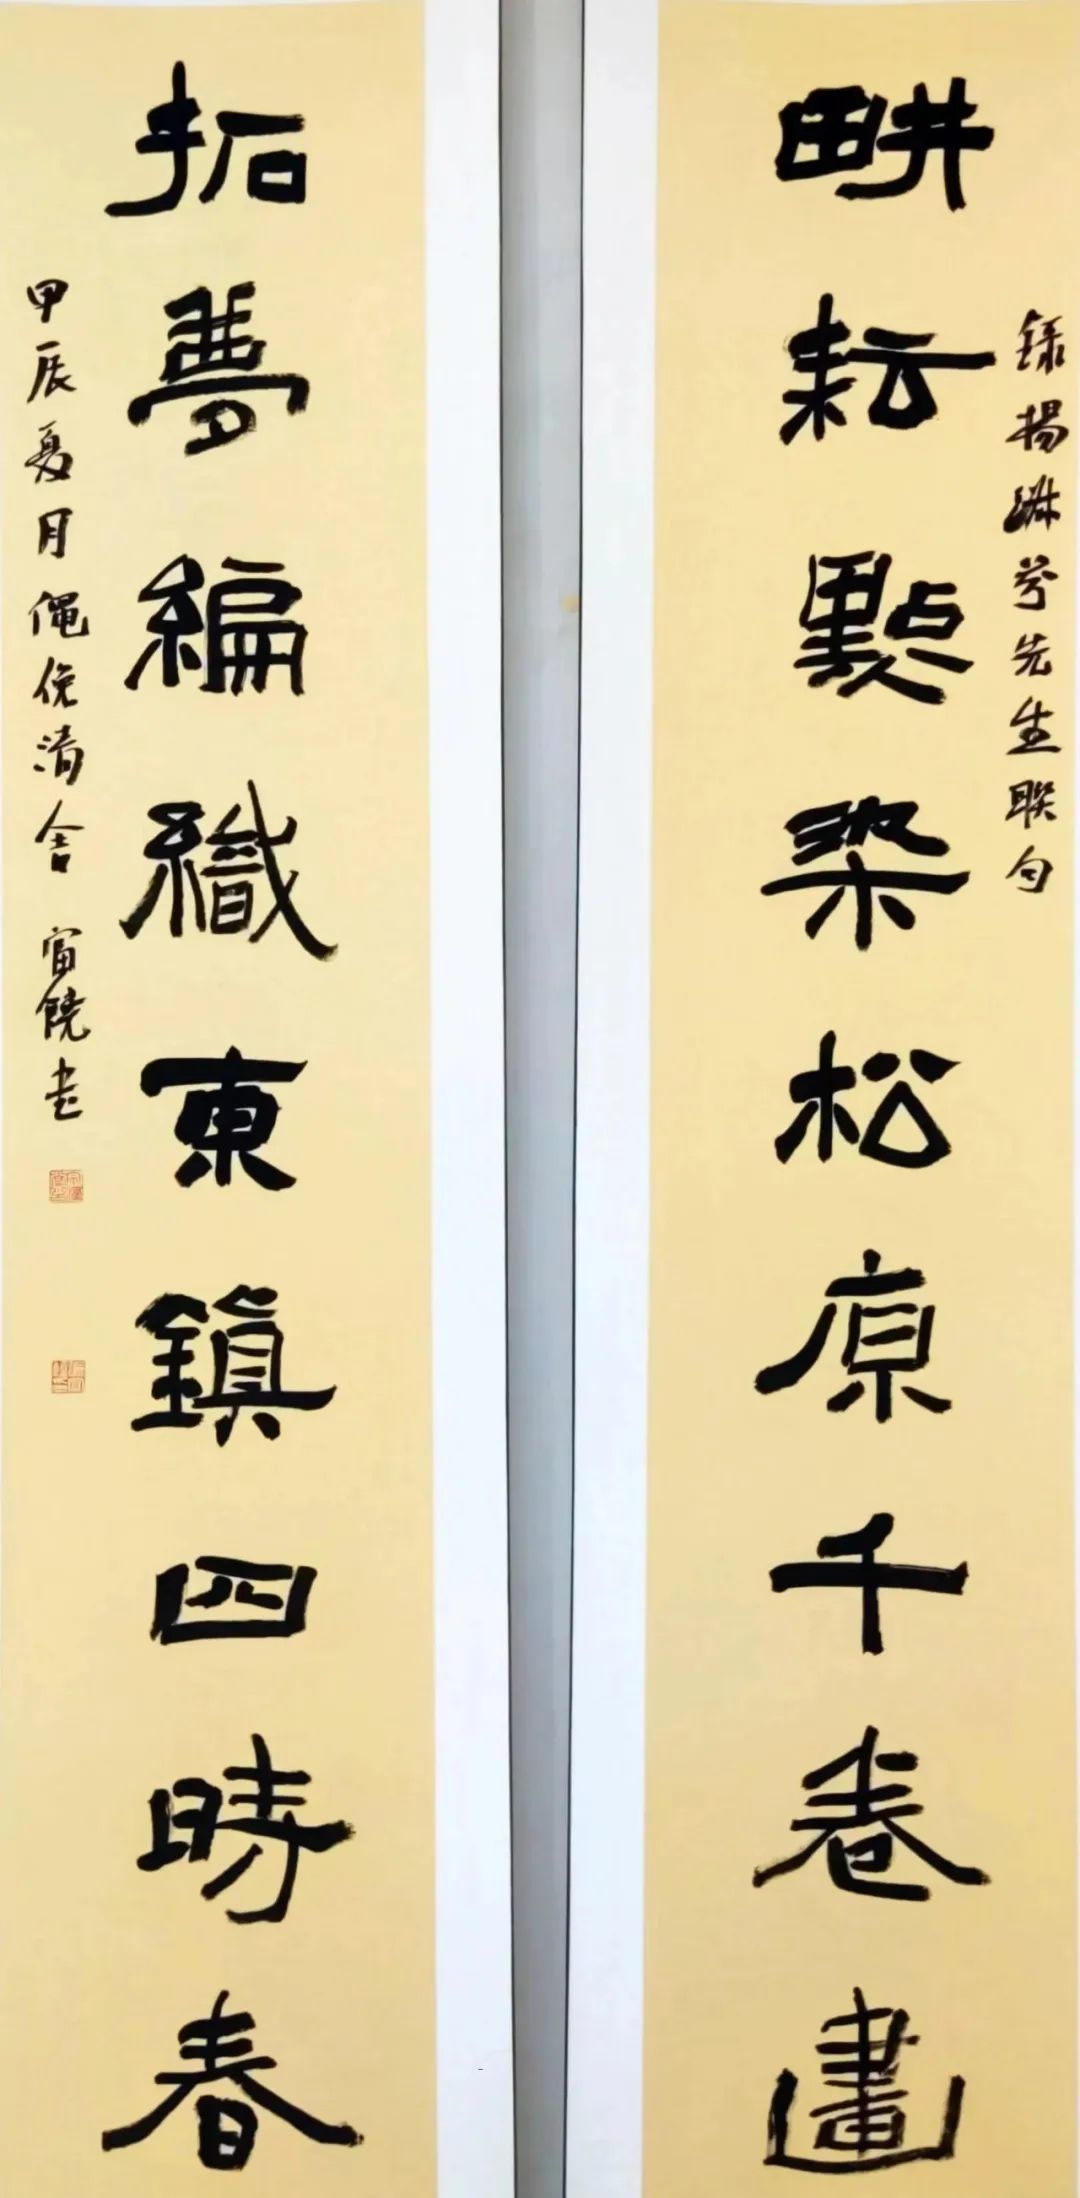 畊耘點染松原千卷畫
錄楊琳兮先生聯句
拓夢編織東鎮四時春
甲辰夏月僶俛清舍 富饒書